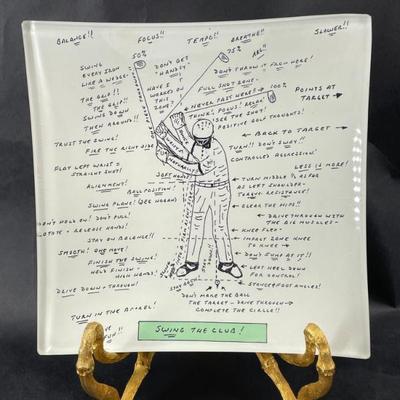 BALANCE!! FOCUS!! TEMPO!! BREATHE!! SLOWER!!
50% 75%
SWING EVERY IRON LIKE A WEDGE!
DON'T GET "HANDSY"
DON'T THROW IT FROM HERE!
THE GRIP!!
THE GRIP!!
HAVE I WORKED ON THIS ZONE?
FULL SHOT ZONE
100%
POINTS AT TARGET
SWING DOWN THEN AROUND!!
NEVER PAST HERE!
THINK! FOCUS! RELAX!
"SEE" THE SHOT!
POSITIVE GOLF THOUGHTS!
TRUST THE SWING!
FIRE THE RIGHT SIDE
BACK TO TARGET
TURN!! DON'T SWAY!!
CONTROLLED AGGRESSION!
FLAT LEFT WRIST =
STRAIGHT SHOT!
LESS IS MORE!
ALIGNMENT!
SOFT HANDS
TURN MIDDLE ½ AS FAR
AS LEFT SHOULDER -
TORQUE - RESISTANCE!
BALL POSITION!
SWING PLANE! (SEE HOGAN)
CLEAR THE HIPS!!
DON'T HOLD ON! DON'T PULL!
ROTATE - RELEASE HANDS!
DRIVE THROUGH WITH
THE BIG MUSCLES
KNEE FLEX
STAY ON BALANCE!!
IMPACT ZONE KNEE
TO KNEE
SMOOTH! ONE MOVE!
FINISH THE SWING!
HOLD FINISH -
HIGH HANDS!
LEFT HEEL DOWN
FOR CONTROL!
DRIVE DOWN + THROUGH!
STANCE & FOOT ANGLES!
DON'T MAKE THE BALL
THE TARGET - DRIVE THROUGH
COMPLETE THE CIRCLE!!
TURN IN THE BARREL!
SWING THE CLUB!